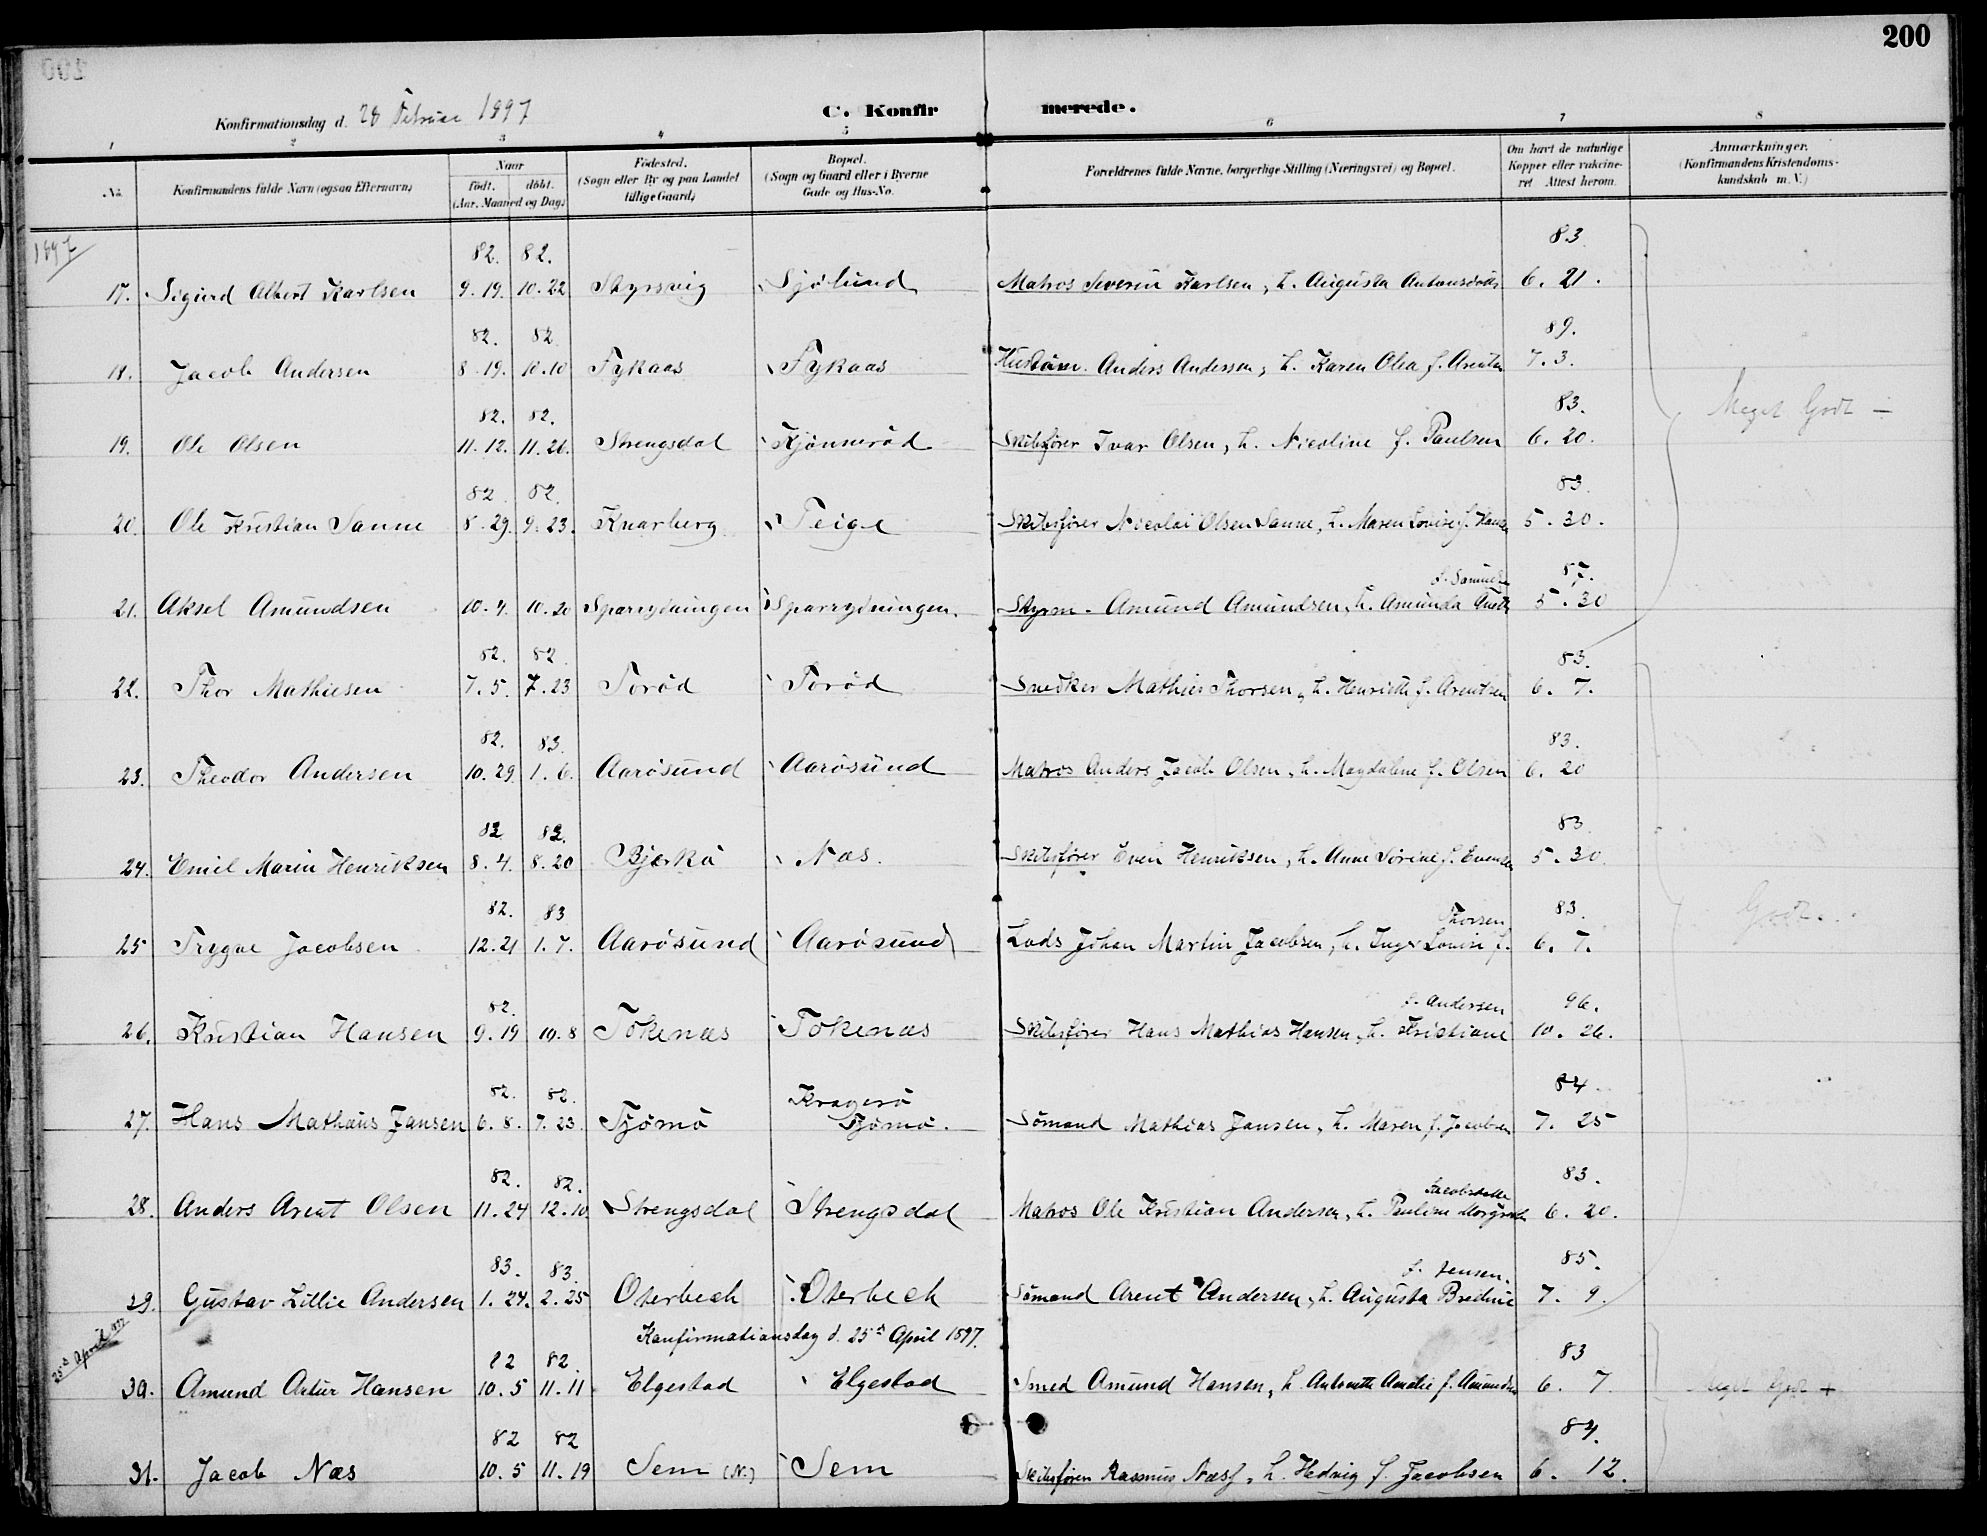 200
Konfirmationsdag d. 28 Februar 1897
C. Konfirmerede.
1 2 3 4 5 6 7 8
No.
Konfirmandens fulde Navn (ogsaa Efternavn)
Naar
født. døbt.
(Aar, Maaned og Dag)
Fødested.
(Sogn eller By og paa Landet
tillige Gaard)
Bopæl.
(Sogn og Gaard eller i Byerne
Gade og Hus-No.
Forældrenes fulde Navne, borgerlige Stilling (Næringsvei) og Bopæl.
Om havt de naturlige
Kopper eller vakcine-
ret Attest herom.
Anmærkninger.
(Konfirmandens Kristendoms-
kundskab m. V.)
1897
82. 82. 83.
17. Sigurd Albert Karlsen 9.19. 10.22 Skyrsvig Sjölund Matros Severin Karlsen, h. Augusta Antonsdatt 6. 21.
82. 82. 89.
18. Jacob Andersen 8.19. 10.10 Fykaas Fykaas Husbom. Anders Anderssen, h. Karen Olea f. 7. 3.
82. 82. 83.
Meget Godt
19. Ole Olsen 11.12. 11.26. Strengsdal Kjønnerød Skibsfører Ivar Olsen, h. Nicoline f. Paulsen 6. 20.
82. 82. 83.
20. Ole Kristian Sanne 8.29. 9.23. Knarberg Teige Skibsfører Nicolai Olsen Sanne, h. Maren Lovise f. Hansen 5. 30.
87.
21. Aksel Amundsen 10.4. 10.20 Sparrydningen Sparrydningen. Styrm. Amund Amundsen, h. Amunda 5. 30
82. 82. 83.
22. Thor Mathiesen 7.5. 7.23 Torød Torød Snedker Mathies Thorsen, h. Henriette f. Arentsen 6. 7.
82. 83. 83.
23. Theodor Andersen 10.29. 1.6. Aarøsund Aarøsund Matros Anders Jacob Olsen, h. Magdalene f. Olsen 6. 20
82 82. 83
24. Emil Marin Henriksen 8.4. 8.20 Bjerkø Næs. Skibsfører Even Henriksen, h. Anne Sørine f. Evensen 5. 30.
82. 83 Thorsen 83.
Godt.
25 Trygve Jacobsen 12.21 1.7. Aarøsund Aarøsund Lods Johan Martin Jacobsen, h. Inger Lovise f. 6. 7.
82. f. Andersen 96.
26. Kristian Hansen 9.19 10.8 Tokenæs Tokenæs Skibsfører Hans Mathias Hansen, h. Kristiane 10. 26.
82. 82. Kragerø 84
27. Hans Mathæus Jansen 6.8. 7.23. Tjømø Tjømø. Sømand Mathias Jansen, h. Maren f. Jacobsen 7. 25
82. 82. Jacobsdatte 83.
28. Anders Arent Olsen 11.24 12.10 Strengsdal Strengsdal Matros Ole Kristian Andersen, h. Pauline 6. 20.
83. 83. f. Jensen. 85.
29. Gustav Lillie Andersen 1.24. 2.25 Oterbech Oterbech Sømand Arent Andersen, h. Augusta Bredine 7. 9.
Konfirmationsdag d. 25de April 1897.
25de April 1897
82 82. 83
30. Amund Artur Hansen 10.5 11.11 Elgestad Elgestad Smed Amund Hansen, h. Antonette Amalie f. Amundsen 6. 7. Meget Godt +
82 82 84.
31. Jacob Næs 10.5 11.19 Sem (N.) Sem Skibsfören Rasmus Næss, h. Hedvig f. Jacobsen 6. 12.